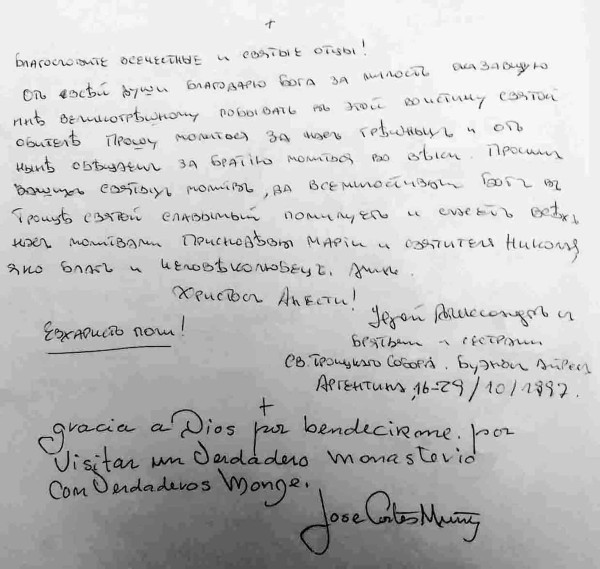 +
Благословите всечестные и святые отцы!
От всей души благодарю Бога за милость оказавшую
мнѣ великогрѣшному побывать въ этой воистину святой
обителѣ Прошу молиться за насъ грѣшныхъ и отъ
нынѣ обѣщаемъ за братию молиться во вѣки. Просимъ
вашихъ святыхъ молитвъ, да всемилостивый Богъ въ
Троицѣ святой славымый помилуетъ и спасетъ всѣхъ
насъ молитвами Приснодѣвы Маріи и святителя Николы
яко благъ и человѣколюбецъ. Аминь.
Христосъ Анести!
Евхаристо поли!
Иерей Александръ и
братьями и сестрами
Св. Троицкаго Собора. Буэнос Айрес
Аргентина, 16-29/10/1997.
+
gracia a Dios por bendecirme. por
Visitar un Verdadero monasterio
Com Verdaderos Monge.
Jose Cortes Muñ